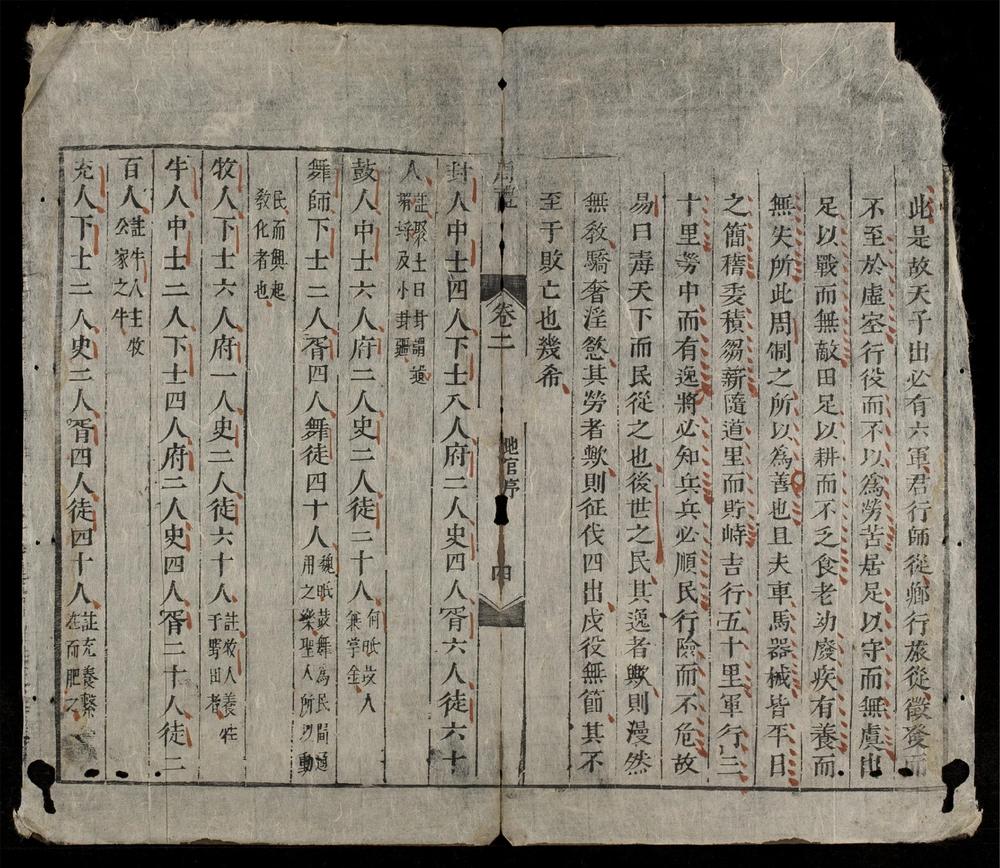 此是故天子出必有六軍君行師從鄉行旅從徵發而
不至於虛室行役而不以為勞苦居足以守而無虞出
足以戰而無敵田足以耕而不乏食老幼廢疾有養而
無失所此周制之所以為善也且夫車馬器械皆平日
之簡稽委積芻薪隨道里而貯峙吉行五十里軍行三
十里勞中而有逸將必知兵兵必順民行險而不危故
易曰毒天下而民從之也後世之民其逸者歟則漫然
無敎驕奢淫慾其勞者歟則征伐四出戍役無節其不
至于敗亡也幾希
周禮
卷二
地官序
四
封人中士四人下士八人府二人史四人胥六人徒六十
人
註聚土曰封謂壝
堳埒及小封疆
鼓人中士六人府二人史二人徒二十人
何氏鼓人
兼掌金
舞師下士二人胥四人舞徒四十人
魏氏鼓舞為民間通
用之樂聖人所以動
民而興起
敎化者也
牧人下士六人府一人史二人徒六十人
註牧人養牲
于野田者
牛人中士二人下士四人府二人史四人胥二十人徒二
百人
註牛人主牧
公家之牛
充人下士二人史二人胥四人徒四十人
註充養繫
在而肥之